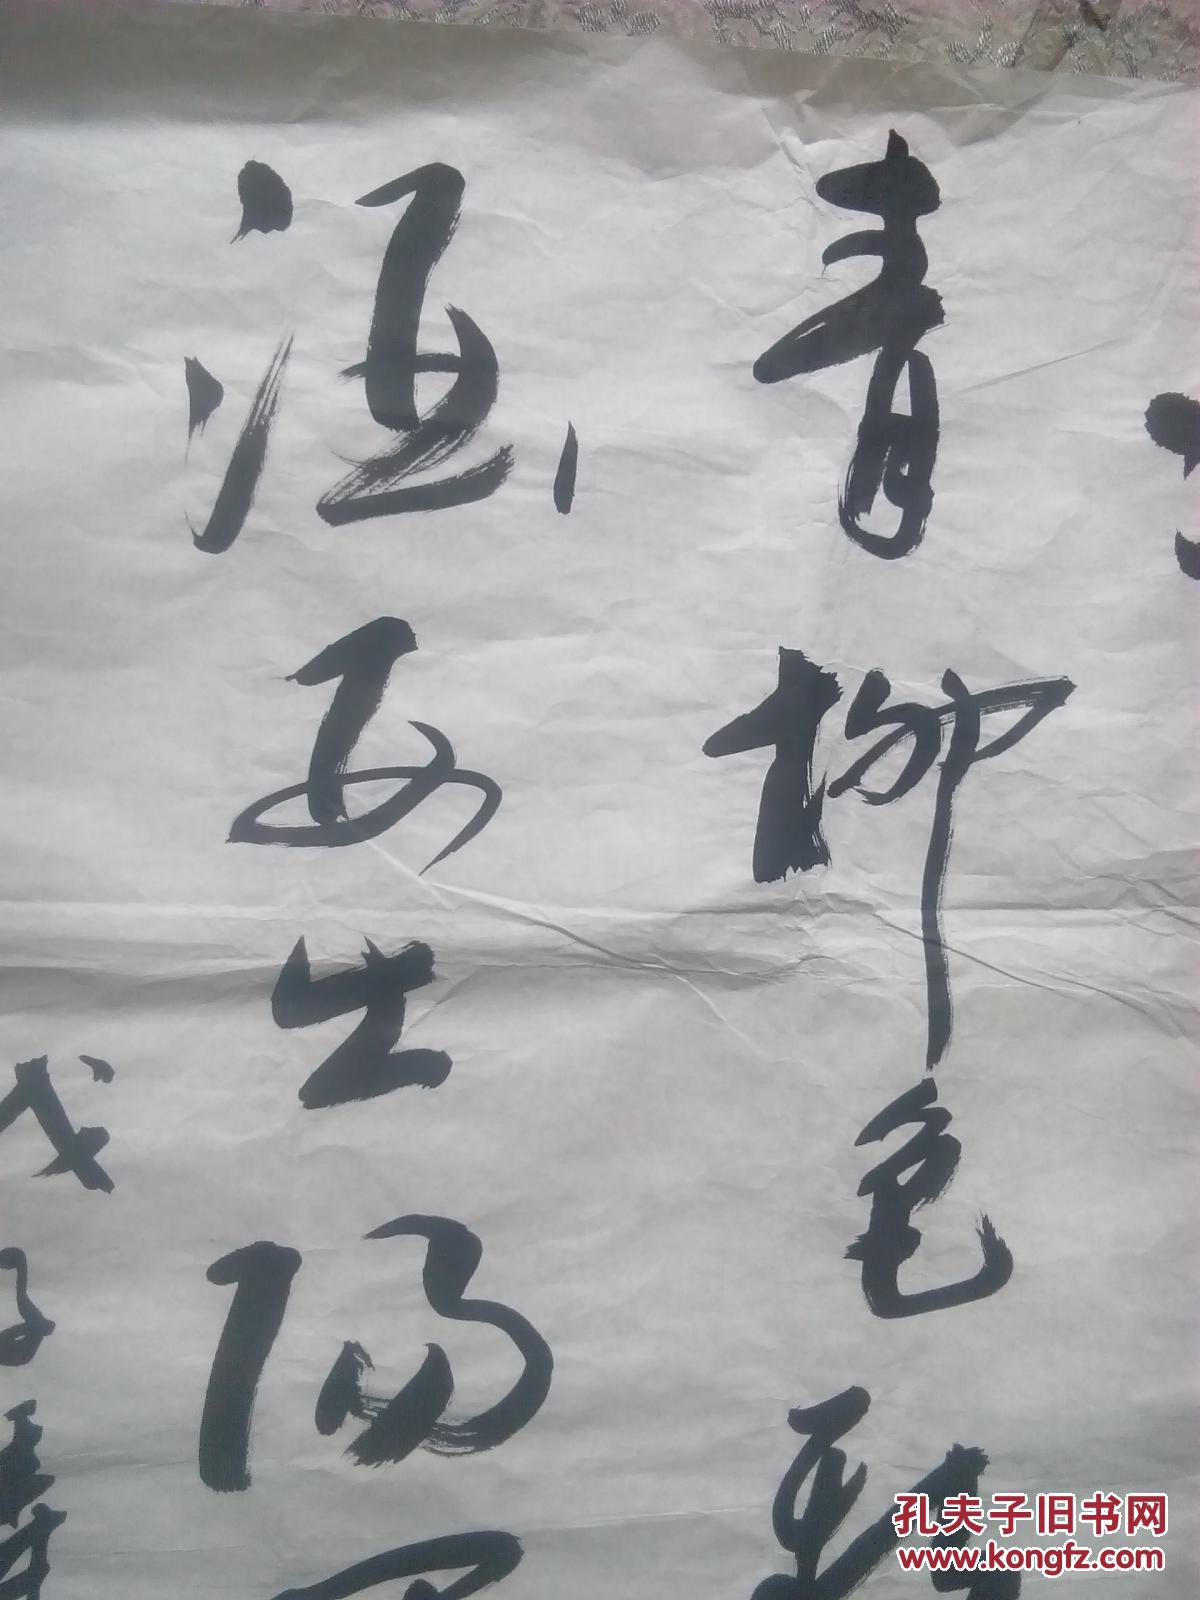 青柳色新
酒西出陽
戊子
孔夫子旧书网
www.kongfz.com